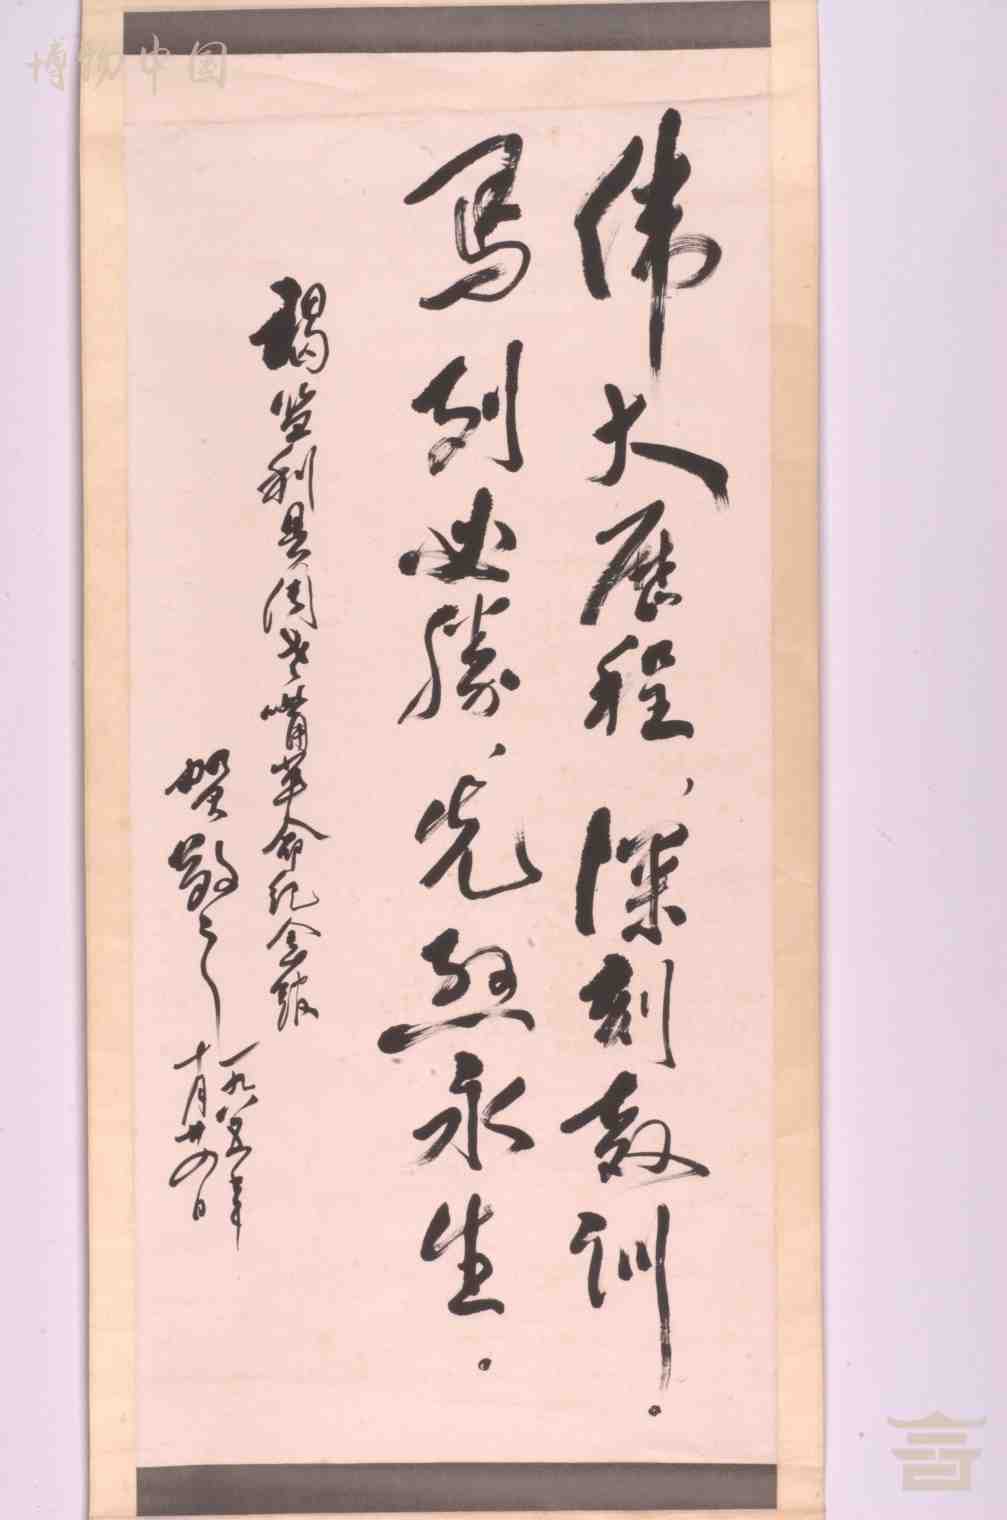 伟大历程，深刻教训。
马列必勝，先烈永生。
谒监利县周老嘴革命纪念馆
贺敬之
一九八五年
十月廿四日
博物中国